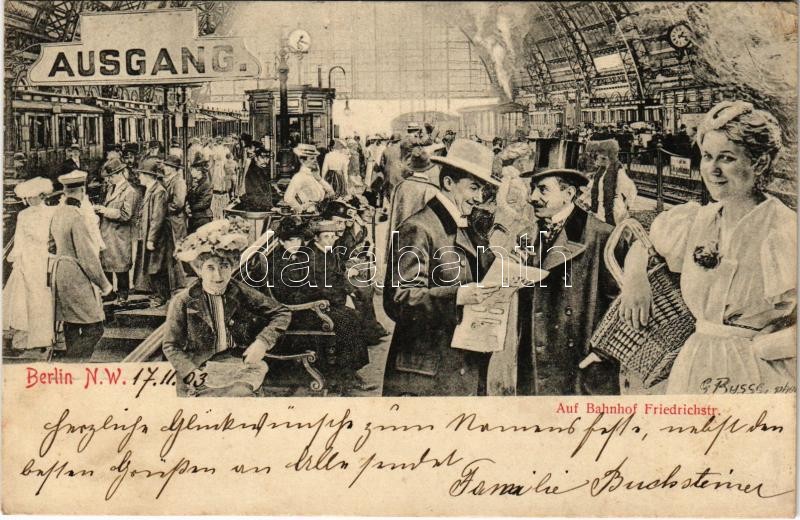 AUSGANG.
darabanth
Berlin N.W. 17.11.03
G. Busse
Auf Bahnhof Friedrichstr.
Herzliche Glückwünsche zum Namensfeste, nebst den
besten Grüßen an Alle sendet
Familie Bucksteiner